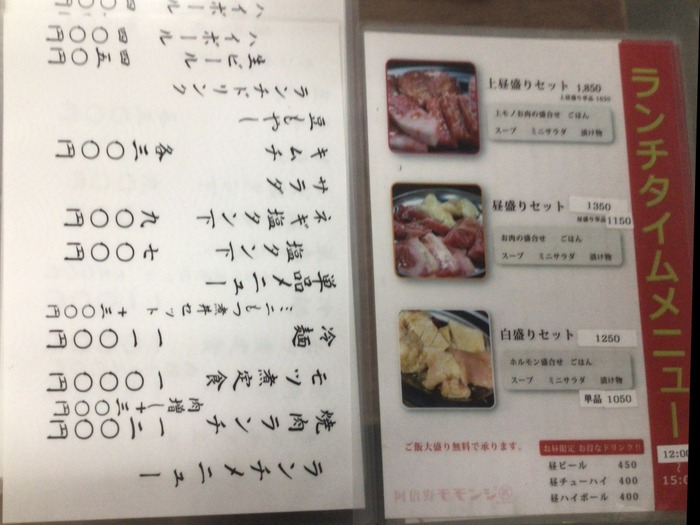 ランチメニュー
焼肉ランチ 一二〇〇円
肉増し+三〇〇円
モツ煮定食 一〇〇〇円
冷麺 一一〇〇円
ミニもつ煮丼セット+三〇〇円
単品メニュー
塩タン下 七〇〇円
ネギ塩タン下 九〇〇円
サラダ
キムチ 各三〇〇円
豆もやし
ランチドリンク
生ビール 四五〇円
ハイボール 四〇〇円
ランチタイムメニュー
12:00
~
15:0
上昼盛りセット 1,850
上昼盛り単品 1650
上モノお肉の盛合せ ごはん
スープ ミニサラダ 漬け物
昼盛りセット 1350
昼盛り単品 1150
お肉の盛合せ ごはん
スープ ミニサラダ 漬け物
白盛りセット 1250
ホルモン盛合せ ごはん
スープ ミニサラダ 漬け物
単品 1050
ご飯大盛り無料で承ります。
お昼限定 お得なドリンク!!
昼ビール 450
昼チューハイ 400
昼ハイボール 400
阿倍野モモンジ